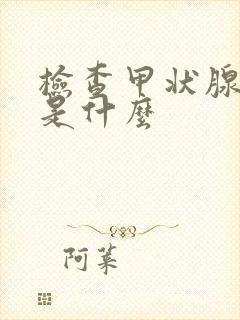 檢查甲状腺
是什麼
阿菜